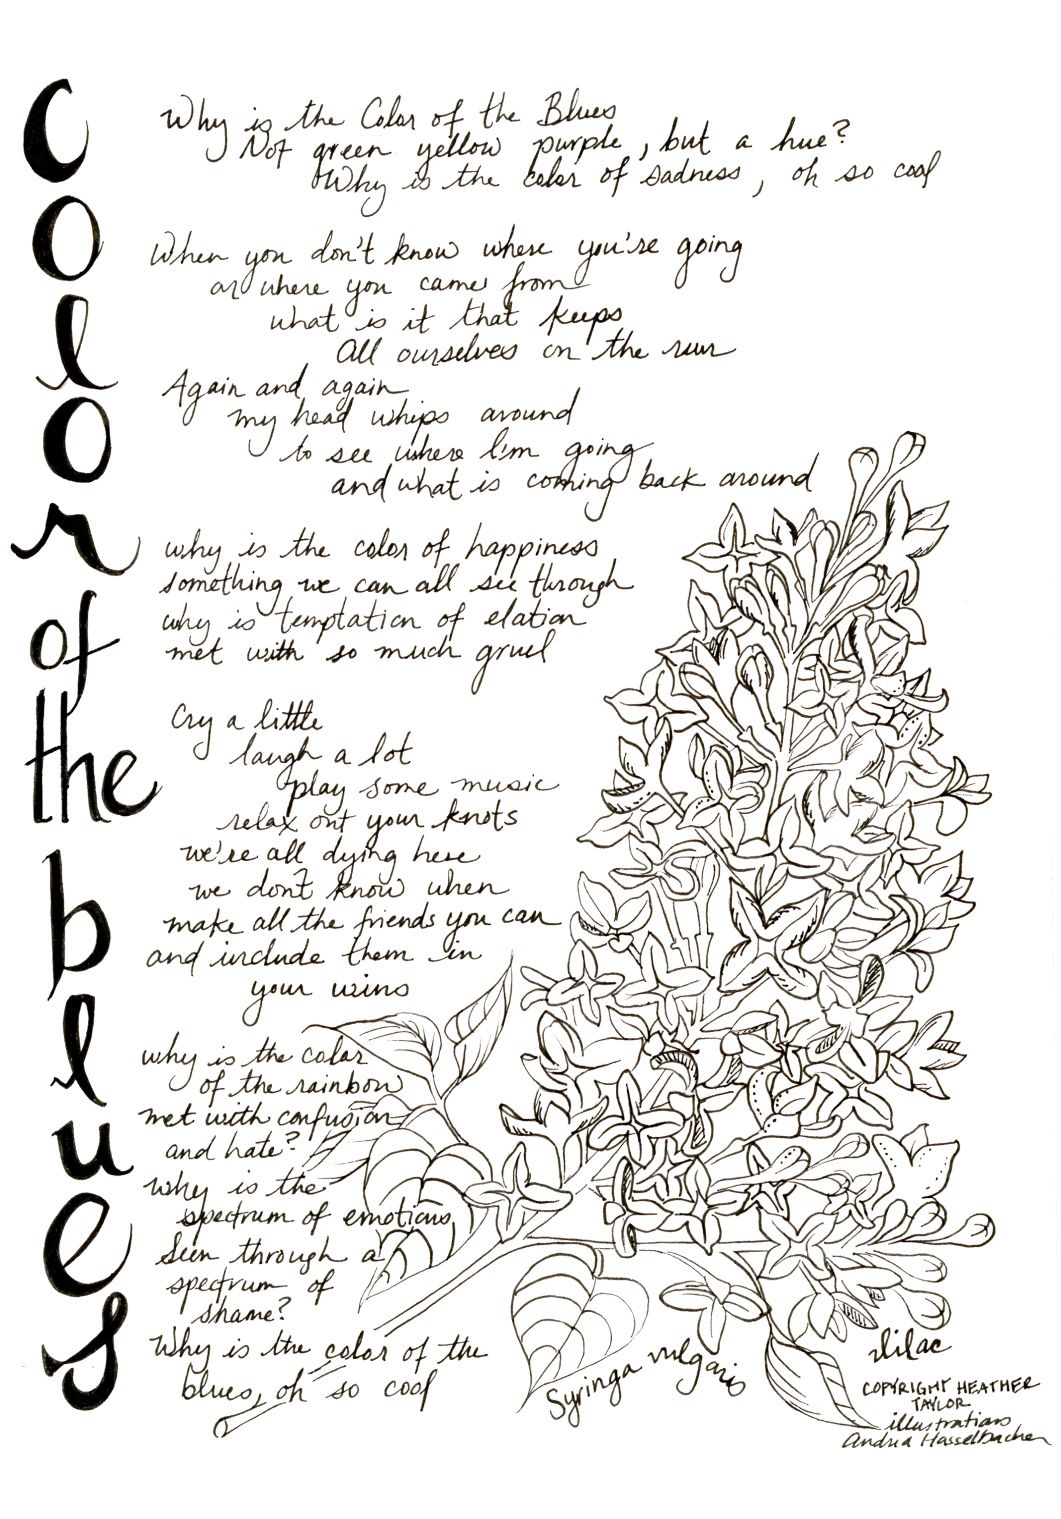 Color of the blues
Why is the Color of the Blues
Not green yellow purple, but a hue?
Why is the color of sadness, oh so cool
When you don't know where you're going
or where you came from
what is it that keeps
All ourselves on the run
Again and again
my head whips around
to see where I'm going
and what is coming back around
why is the color of happiness
something we can all see through
why is temptation of elation
met with so much gruel
Cry a little
laugh a lot
play some music
relax out your knots
we're all dying here
we don't know when
make all the friends you can
and include them in
your wins
why is the color
of the rainbow
met with confusion
and hate?
why is the
spectrum of emotions
Seen through a
spectrum of
shame?
Why is the color of the
blues, oh so cool
Syringa vulgaris
lilac
COPYRIGHT HEATHER
TAYLOR
illustrations
Andrea Hasselbacher